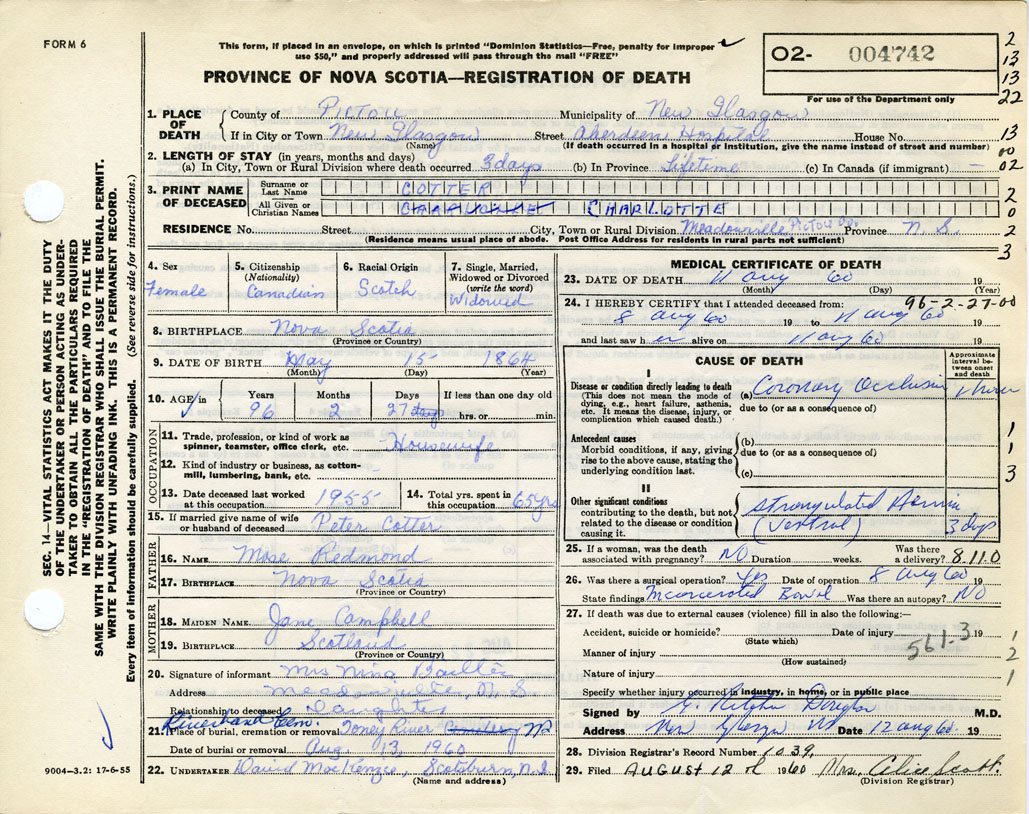 FORM 6
This form, if placed in an envelope, on which is printed "Dominion Statistics—Free, penalty for improper
use $50," and properly addressed will pass through the mail "FREE"
PROVINCE OF NOVA SCOTIA—REGISTRATION OF DEATH
O2- 004742
For use of the Department only
2
13
13
22
13
00
02
2
0
2
3
1. PLACE OF DEATH
County of PICTOU Municipality of New Glasgow
If in City or Town New Glasgow Street Aberdeen Hospital House No.
(Name) (If death occurred in a hospital or institution, give the name instead of street and number)
2. LENGTH OF STAY (in years, months and days)
(a) In City, Town or Rural Division where death occurred 3 days (b) In Province Lifetime (c) In Canada (if immigrant) —
3. PRINT NAME OF DECEASED
Surname or Last Name COTTER
All Given or Christian Names CHARLOTTE
RESIDENCE No. Street City, Town or Rural Division Meadowville Pictou Co. Province N. S.
(Residence means usual place of abode. Post Office Address for residents in rural parts not sufficient)
4. Sex
Female
5. Citizenship
(Nationality)
Canadian
6. Racial Origin
Scotch
7. Single, Married, Widowed or Divorced
(write the word)
Widowed
8. BIRTHPLACE Nova Scotia
(Province or Country)
9. DATE OF BIRTH May 15 1864
(Month) (Day) (Year)
10. AGE in
Years Months Days If less than one day old
96 2 27 days hrs. or min.
OCCUPATION
11. Trade, profession, or kind of work as
spinner, teamster, office clerk, etc. Housewife
12. Kind of industry or business, as cotton-
mill, lumbering, bank, etc.
13. Date deceased last worked
at this occupation 1955
14. Total yrs. spent in
this occupation 65 yrs
15. If married give name of wife
or husband of deceased Peter Cotter
FATHER
16. NAME Mose Redmond
17. BIRTHPLACE Nova Scotia
(Province or Country)
MOTHER
18. MAIDEN NAME Jane Campbell
19. BIRTHPLACE Scotland
(Province or Country)
20. Signature of informant Mrs Nina
Address Meadowville, N. S.
Relationship to deceased Daughter
Riverbank Cem.
21. Place of burial, cremation or removal Toney River NS
Date of burial or removal Aug. 13, 1960
22. UNDERTAKER David MacKenzie, Scotsburn, N.S
(Name and address)
MEDICAL CERTIFICATE OF DEATH
23. DATE OF DEATH 11 Aug 60 19
(Month) (Day) (Year)
24. I HEREBY CERTIFY that I attended deceased from: 96-2-27-00
8 Aug 60 19 to 11 Aug 60 19
and last saw her alive on 11 Aug 60 19
CAUSE OF DEATH
Approximate interval between onset and death
I
Disease or condition directly leading to death
(This does not mean the mode of
dying, e.g., heart failure, asthenia,
etc. It means the disease, injury, or
complication which caused death.)
(a) Coronary Occlusion 1 hour
due to (or as a consequence of)
Antecedent causes
Morbid conditions, if any, giving
rise to the above cause, stating the
underlying condition last.
(b)
due to (or as a consequence of)
(c)
1
1
3
II
Other significant conditions
contributing to the death, but not
related to the disease or condition
causing it.
Strangulated Hernia
(Ventral) 3 days
25. If a woman, was the death
associated with pregnancy? NO Duration weeks. Was there
a delivery? 8.11.0
26. Was there a surgical operation? Yes Date of operation 8 Aug 60 19
State findings Incarcerated Bowel Was there an autopsy? NO
27. If death was due to external causes (violence) fill in also the following:—
Accident, suicide or homicide? Date of injury 19
(State which)
561-3
Manner of injury
(How sustained)
Nature of injury
1
2
1
Specify whether injury occurred in industry, in home, or in public place
Signed by M.D.
Address New Glasgow NS Date 12 Aug 60 19
28. Division Registrar's Record Number 1039
29. Filed AUGUST 12th 1960 Mrs. Alice Scott.
(Division Registrar)
SEC. 14—VITAL STATISTICS ACT MAKES IT THE DUTY
OF THE UNDERTAKER OR PERSON ACTING AS UNDER-
TAKER TO OBTAIN ALL THE PARTICULARS REQUIRED
IN THE "REGISTRATION OF DEATH" AND TO FILE THE
SAME WITH THE DIVISION REGISTRAR WHO SHALL ISSUE THE BURIAL PERMIT.
WRITE PLAINLY WITH UNFADING INK. THIS IS A PERMANENT RECORD.
Every item of information should be carefully supplied. (See reverse side for instructions.)
9004—3.2: 17-6-55